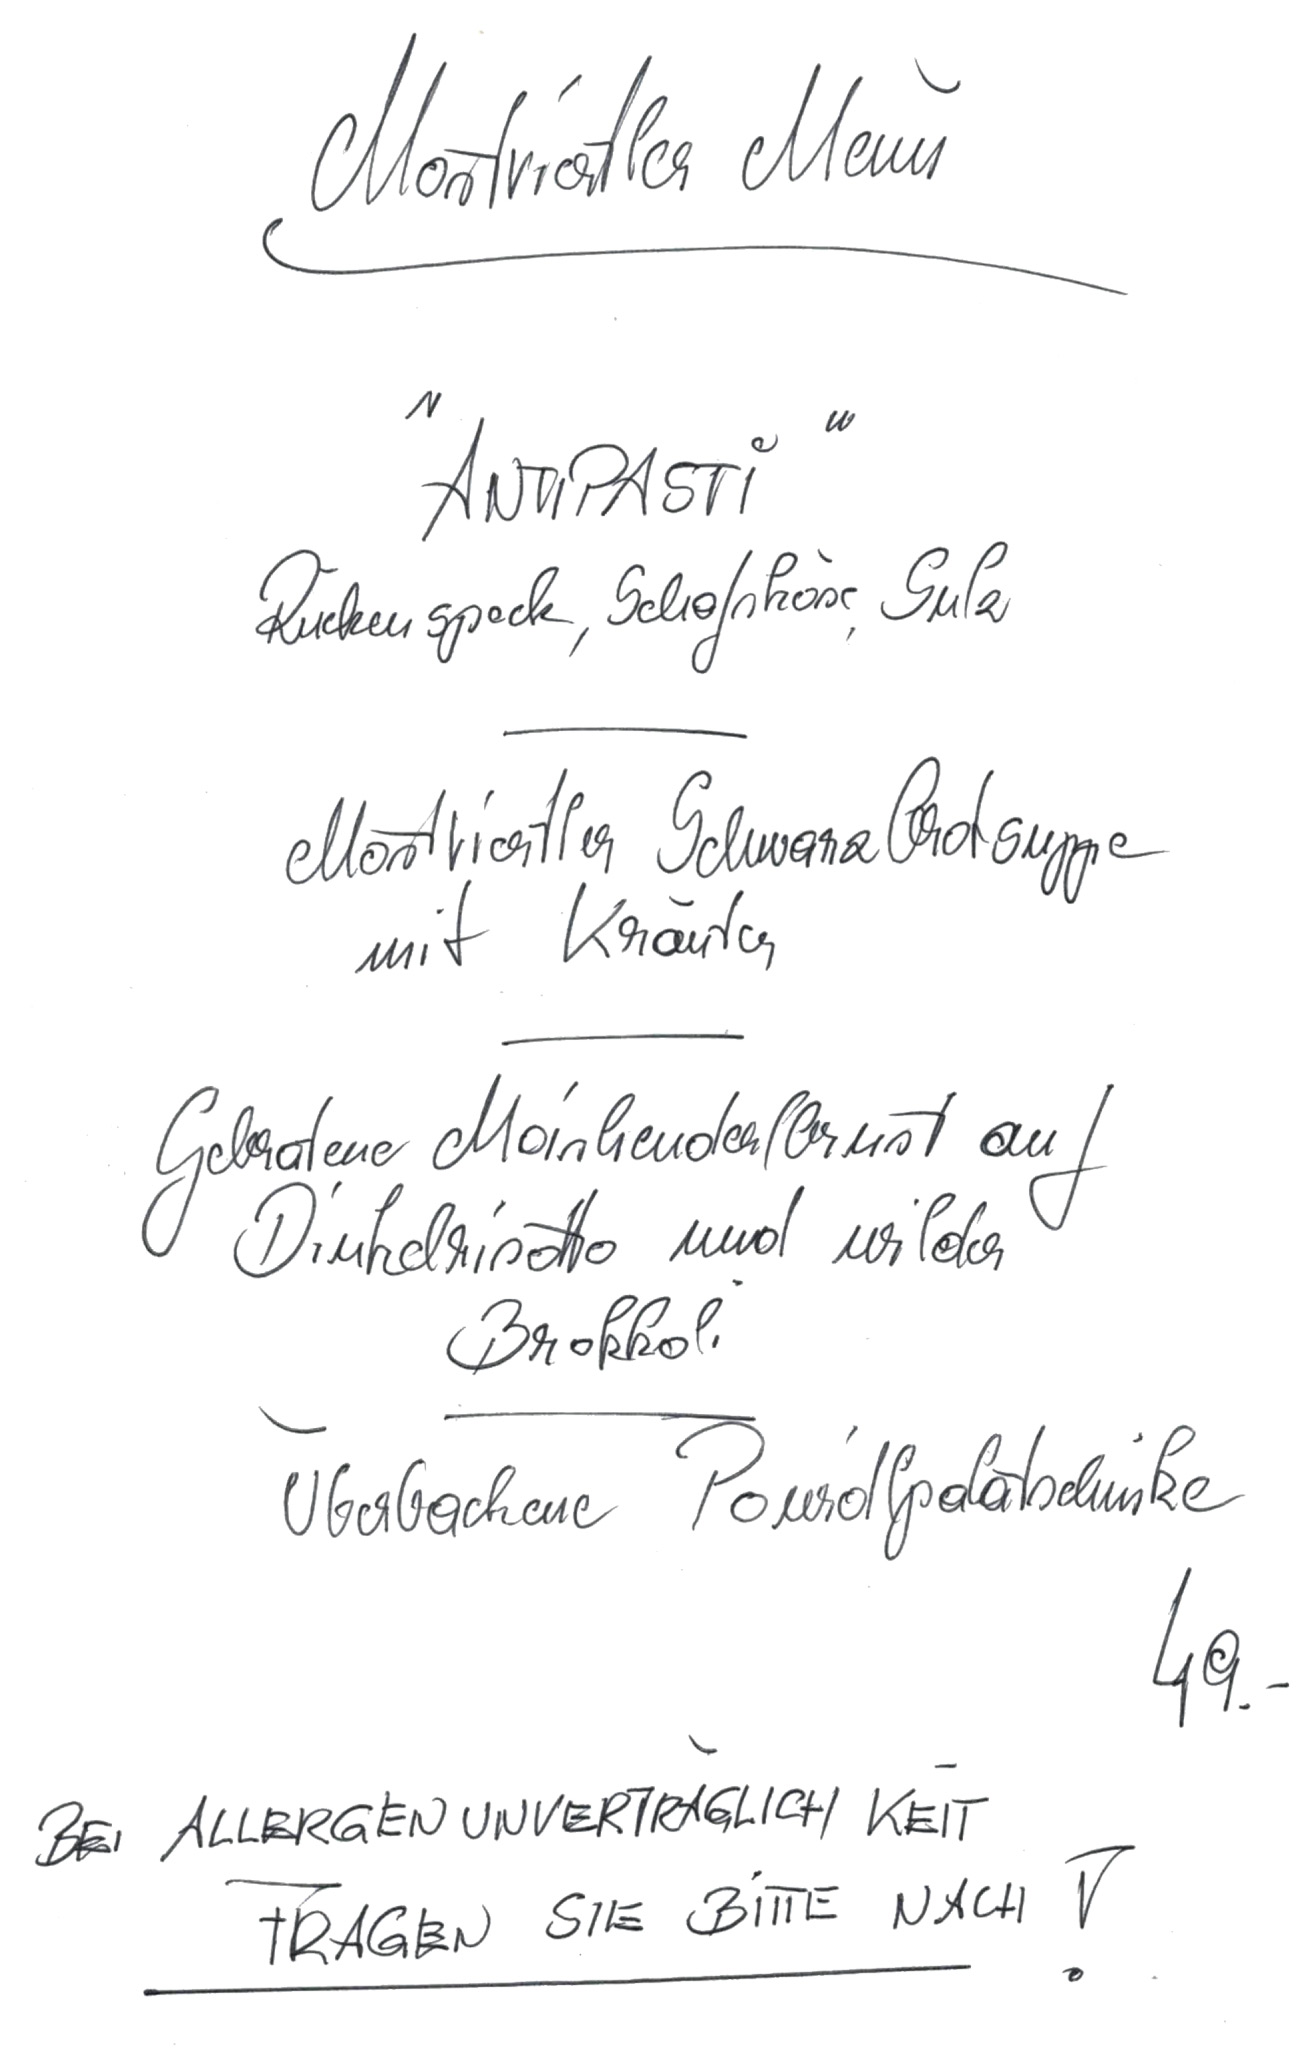 Mostviertler Menü
"ANTIPASTI"
Rückenspeck, Schafskäse, Sulz
Mostviertler Schwarzbrotsuppe
mit Kräuter
Gebratene Maishenderlbrust auf
Dinkelrisotto und wilder
Brokkoli
Überbackene Powidlpalatschinke
49.-
BEI ALLERGENUNVERTRÄGLICHKEIT
FRAGEN SIE BITTE NACH!